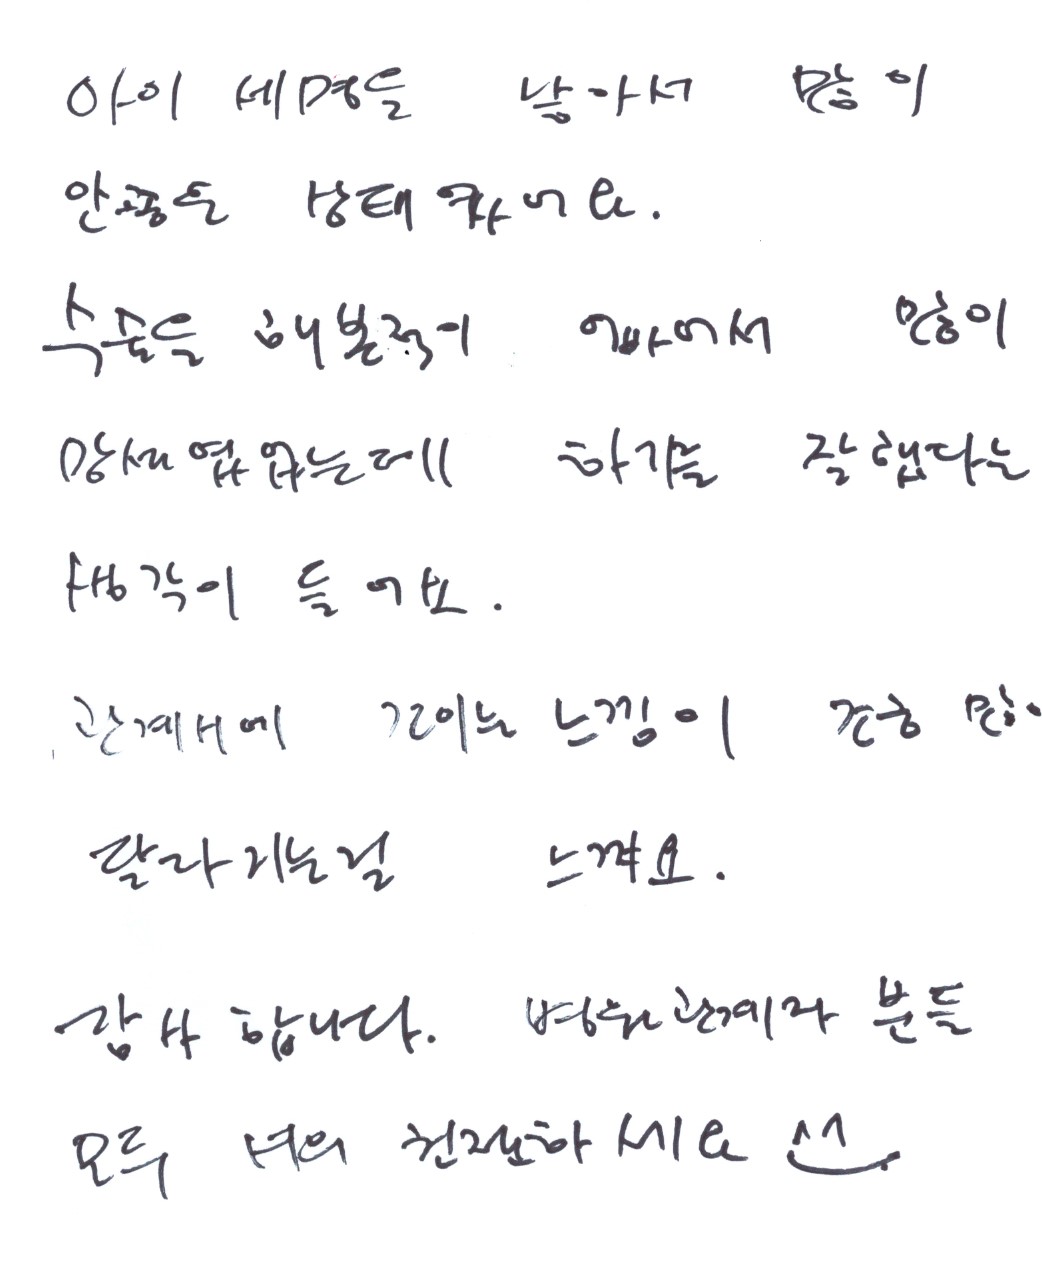 아이 세명을 낳아서 많이
안좋은 상태였어요.
수술을 해본적이 없어서 많이
망설였었는데 하기를 잘했다는
생각이 들어요.
관계시에 조이는 느낌이 전혀 많이
달라지는걸 느껴요.
감사합니다. 병원관계자 분들
모두 너무 친절하세요 ^^